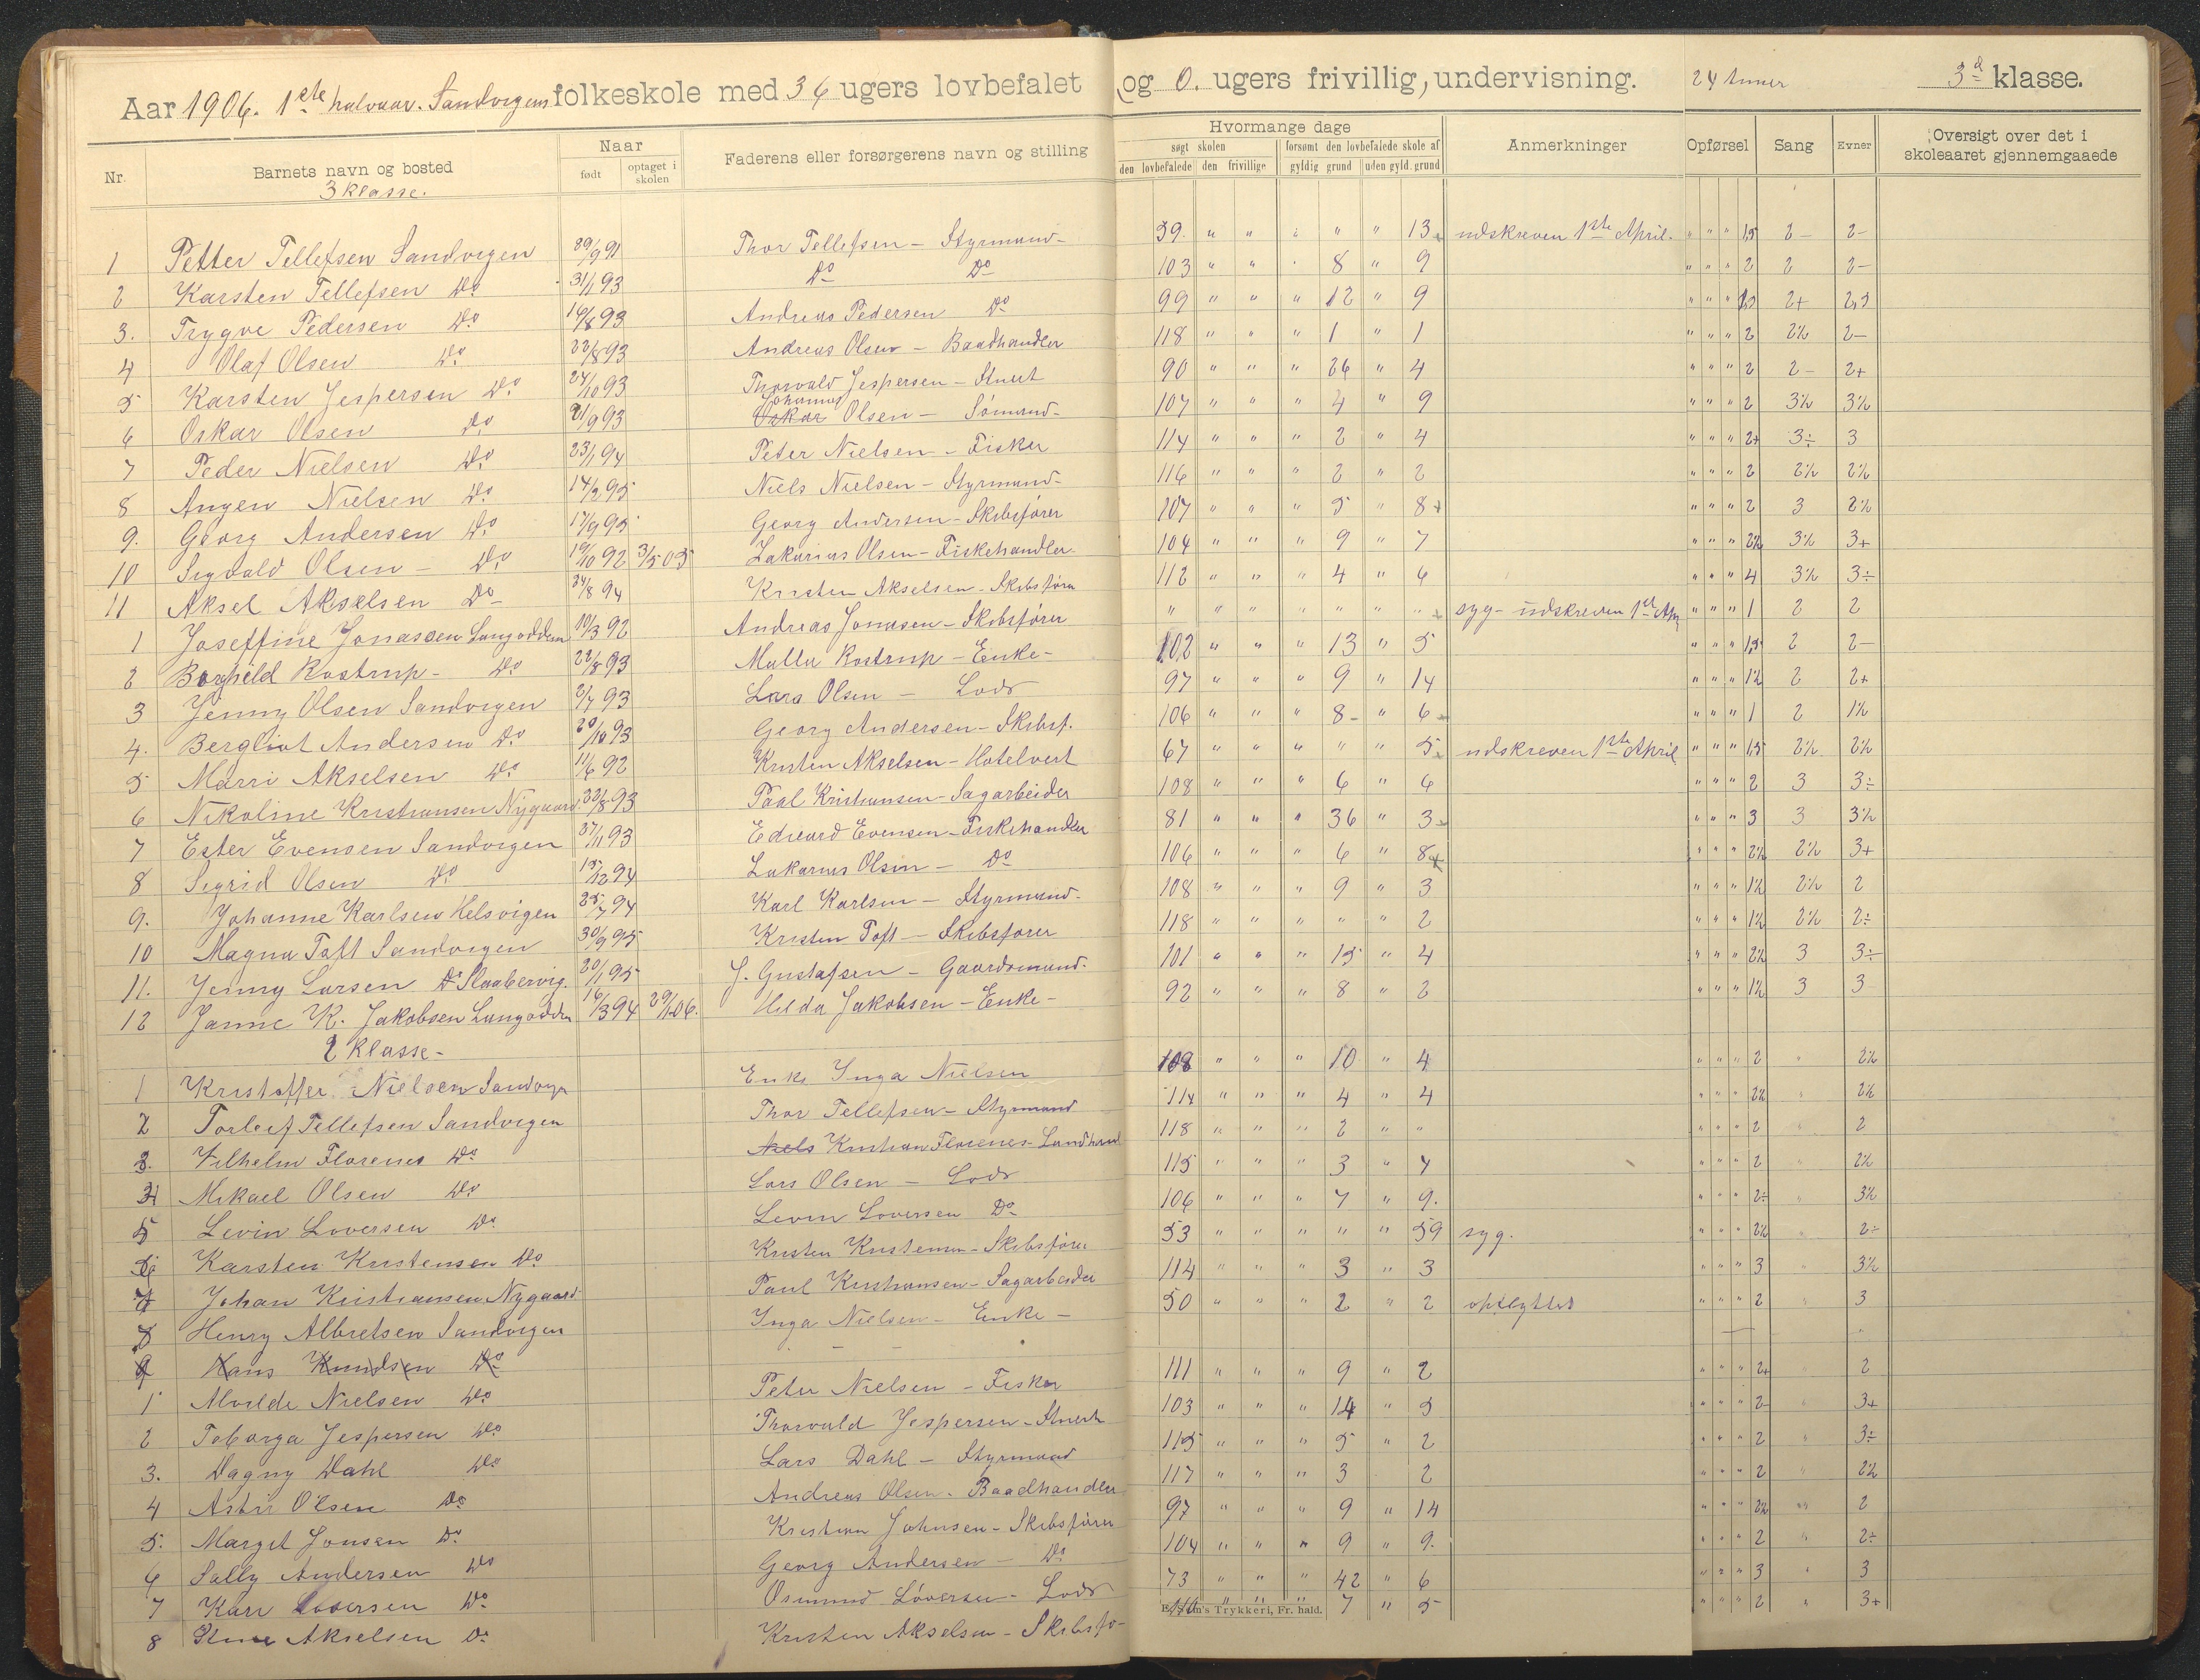 Aar 1906. 1ste halvaar. Sandvigens folkeskole med 36 ugers lovbefalet og 0. ugers frivillig, undervisning. 24 timer 3d klasse.
Nr. Barnets navn og bosted Naar født optaget i skolen Faderens eller forsørgerens navn og stilling Hvormange dage søgt skolen den lovbefalede den frivillige forsømt den lovbefalede skole af gyldig grund uden gyld. grund Anmerkninger Opførsel Sang Evner Oversigt over det i skoleaaret gjennemgaaede
3 klasse.
1 Petter Tellefsen Sandvigen 29/9 91 Thor Tellefsen - Styrmand - 59. " " " " " 13 udskreven 1ste April. " " " 1,5 2 - 2 -
2 Karsten Tellefsen Do 31/1 93 Do Do 103 " " " 8 " 9 " " " 2 2 2 -
3. Trygve Pedersen Do 16/8 93 Andreas Pedersen Do 99 " " " 12 " 9 " " " 1,5 2+ 2,5
4 Olaf Olsen Do 22/8 93 Andreas Olsen - Baadhandler 118 " " " 1 " 1 " " " 2 2½ 2 -
5 Karsten Jespersen Do 24/10 93 Thorvald Jespersen - Stuert 90 " " " 26 " 4 " " " 2 2 - 2+
6 Oskar Olsen Do 21/9 93 Johannes Oskar Olsen - Sömand - 107 " " " 4 " 9 " " " 2 3½ 3½
7 Peder Nielsen Do 23/1 94 Peter Nielsen - Fisker 114 " " " 2 " 4 " " " 2+ 3÷ 3
8 Angen Nielsen Do 14/2 95 Niels Nielsen - Styrmand - 116 " " " 2 " 2 " " " 2 2½ 2½
9. Georg Andersen Do 17/9 95 Georg Andersen - Skibsfører 107 " " " 5 " 8 " " " 2 3 2½
10 Sigvald Olsen - Do 19/10 92 3/5 05 Zakarias Olsen - Fiskehandler - 104 " " " 9 " 7 " " " 2½ 3½ 3+
11 Aksel Akselsen Do 24/8 94 Kristen Akselsen - Skibsfører 112 " " " 4 " 6 " " " 4 3½ 3÷
1 Joseffine Jonassen Langodden 10/3 92 Andreas Jonasen - Skibsfører " " " " " " " syg - udskreven 1st Apr " " " 1 2 2
2 Borghild Rostrup - Do 22/8 93 Malla Rostrup - Enke - 102 " " " 13 " 5 " " " 1,5 2 2 -
3 Jenny Olsen Sandvigen 2/7 93 Lars Olsen - Lods 97 " " " 9 " 14 " " " 1½ 2 2+
4. Bergliot Andersen Do 20/10 93 Georg Andersen - Skibsf. 106 " " " 8 - " 6 " " " 1 2 1½
5 Marri Akselsen Do 11/6 92 Kristen Akselsen - Hotelvert 67 " " " " " 5 udskreven 1ste April " " " 1,5 2½ 2½
6 Nikoline Kristiansen Nygaard 22/8 93 Paal Kristiansen - Sagarbeider 108 " " " 6 " 6 " " " 2 3 3÷
7 Ester Evensen Sandvigen 27/11 93 Edvard Evensen - Fiskehandler 81 " " " 36 " 3 " " " 3 3 3½
8 Sigrid Olsen Do 15/12 94 Zakarias Olsen - Do 106 " " " 6 " 8 " " " 2½ 2½ 3+
9. Johanne Karlsen Helsvigen 25/7 94 Karl Karlsen - Styrmand - 108 " " " 9 " 3 " " " 1½ 2½ 2
10 Magna Toft Sandvigen 30/9 95 Kristen Toft - Skibsfører 118 " " " " " 2 " " " 1½ 2½ 2÷
11. Jenny Larsen Do Slaabervig. 20/1 95 J. Gustafsen - Gaardsmand - 101 " " " 15 " 4 " " " 2½ 3 3÷
12 Janne K. Jakobsen Langodden 16/3 94 29/1 06. Hilda Jakobsen - Enke - 92 " " " 8 " 2 " " " 1½ 3 3
2 klasse -
1 Kristoffer Nielsen Sandvign Enke Inga Nielsen 108 " " " 10 " 4 " " " 2 " 2½
2 Torleif Tellefsen Sandvigen Thor Tellefsen - Styrmand 114 " " " 4 " 4 " " " 2½ " 2½
3. Vilhelm Florenes Do Niels Kristian Florenes - Landhand 118 " " " 2 " " " " " 2 2
4 Mikael Olsen Do Lars Olsen - Lods 115 " " " 3 " 7 " " " 2 " 2½
5 Levin Loversen Do Levin Loversen Do 106 " " " 7 " 9. " " " 2÷ " 3½
6 Karsten Kristensen Do Kristen Kristensen - Skibsfører 53 " " " " " 59 syg. " " " 2½ 2÷
7 Johan Kristiansen Nygaard Paul Kristiansen - Sagarbeider 114 " " " 3 " 3 " " " 3 " 3½
8 Henry Albretsen Sandvigen Inga Nielsen - Enke - 50 " " " 2 " 2 opflyttet " " " 2 " 3
9 Hans Knudsen Do
1 Alvilde Nielsen Do Peter Nielsen - Fisker 111 " " " 9 " 2 " " " 2+ " 2
2 Toborga Jespersen Do Thorvald Jespersen - Stuert 103 " " " 14 " 5 " " " 2- 3+
3. Dagny Dahl Do Lars Dahl - Styrmand 115 " " " 5 " 2 " " " 2 " 3÷
4 Astri Olsen Do Andreas Olsen - Baadhandler 117 " " " 3 2 " " " 2 " 2½
5. Margit Jonsen Do Kristian Johnsen - Skibsfører 97 " " " 9 " 14 " " " 2½ " 2
6 Sally Andersen Do Georg Andersen - Do 104 " " " 9 " 9. " " " 2 " 2÷
7 Kari Loversen Do Osmund Löversen - Lods 73 " " " 42 " 6 " " " 3 " 3
8 Akselsen Do Kristen Akselsen - Skibsfø- 110 " " " 7 " 5 " " " 2 " 3+
's Trykkeri, Fr. hald.